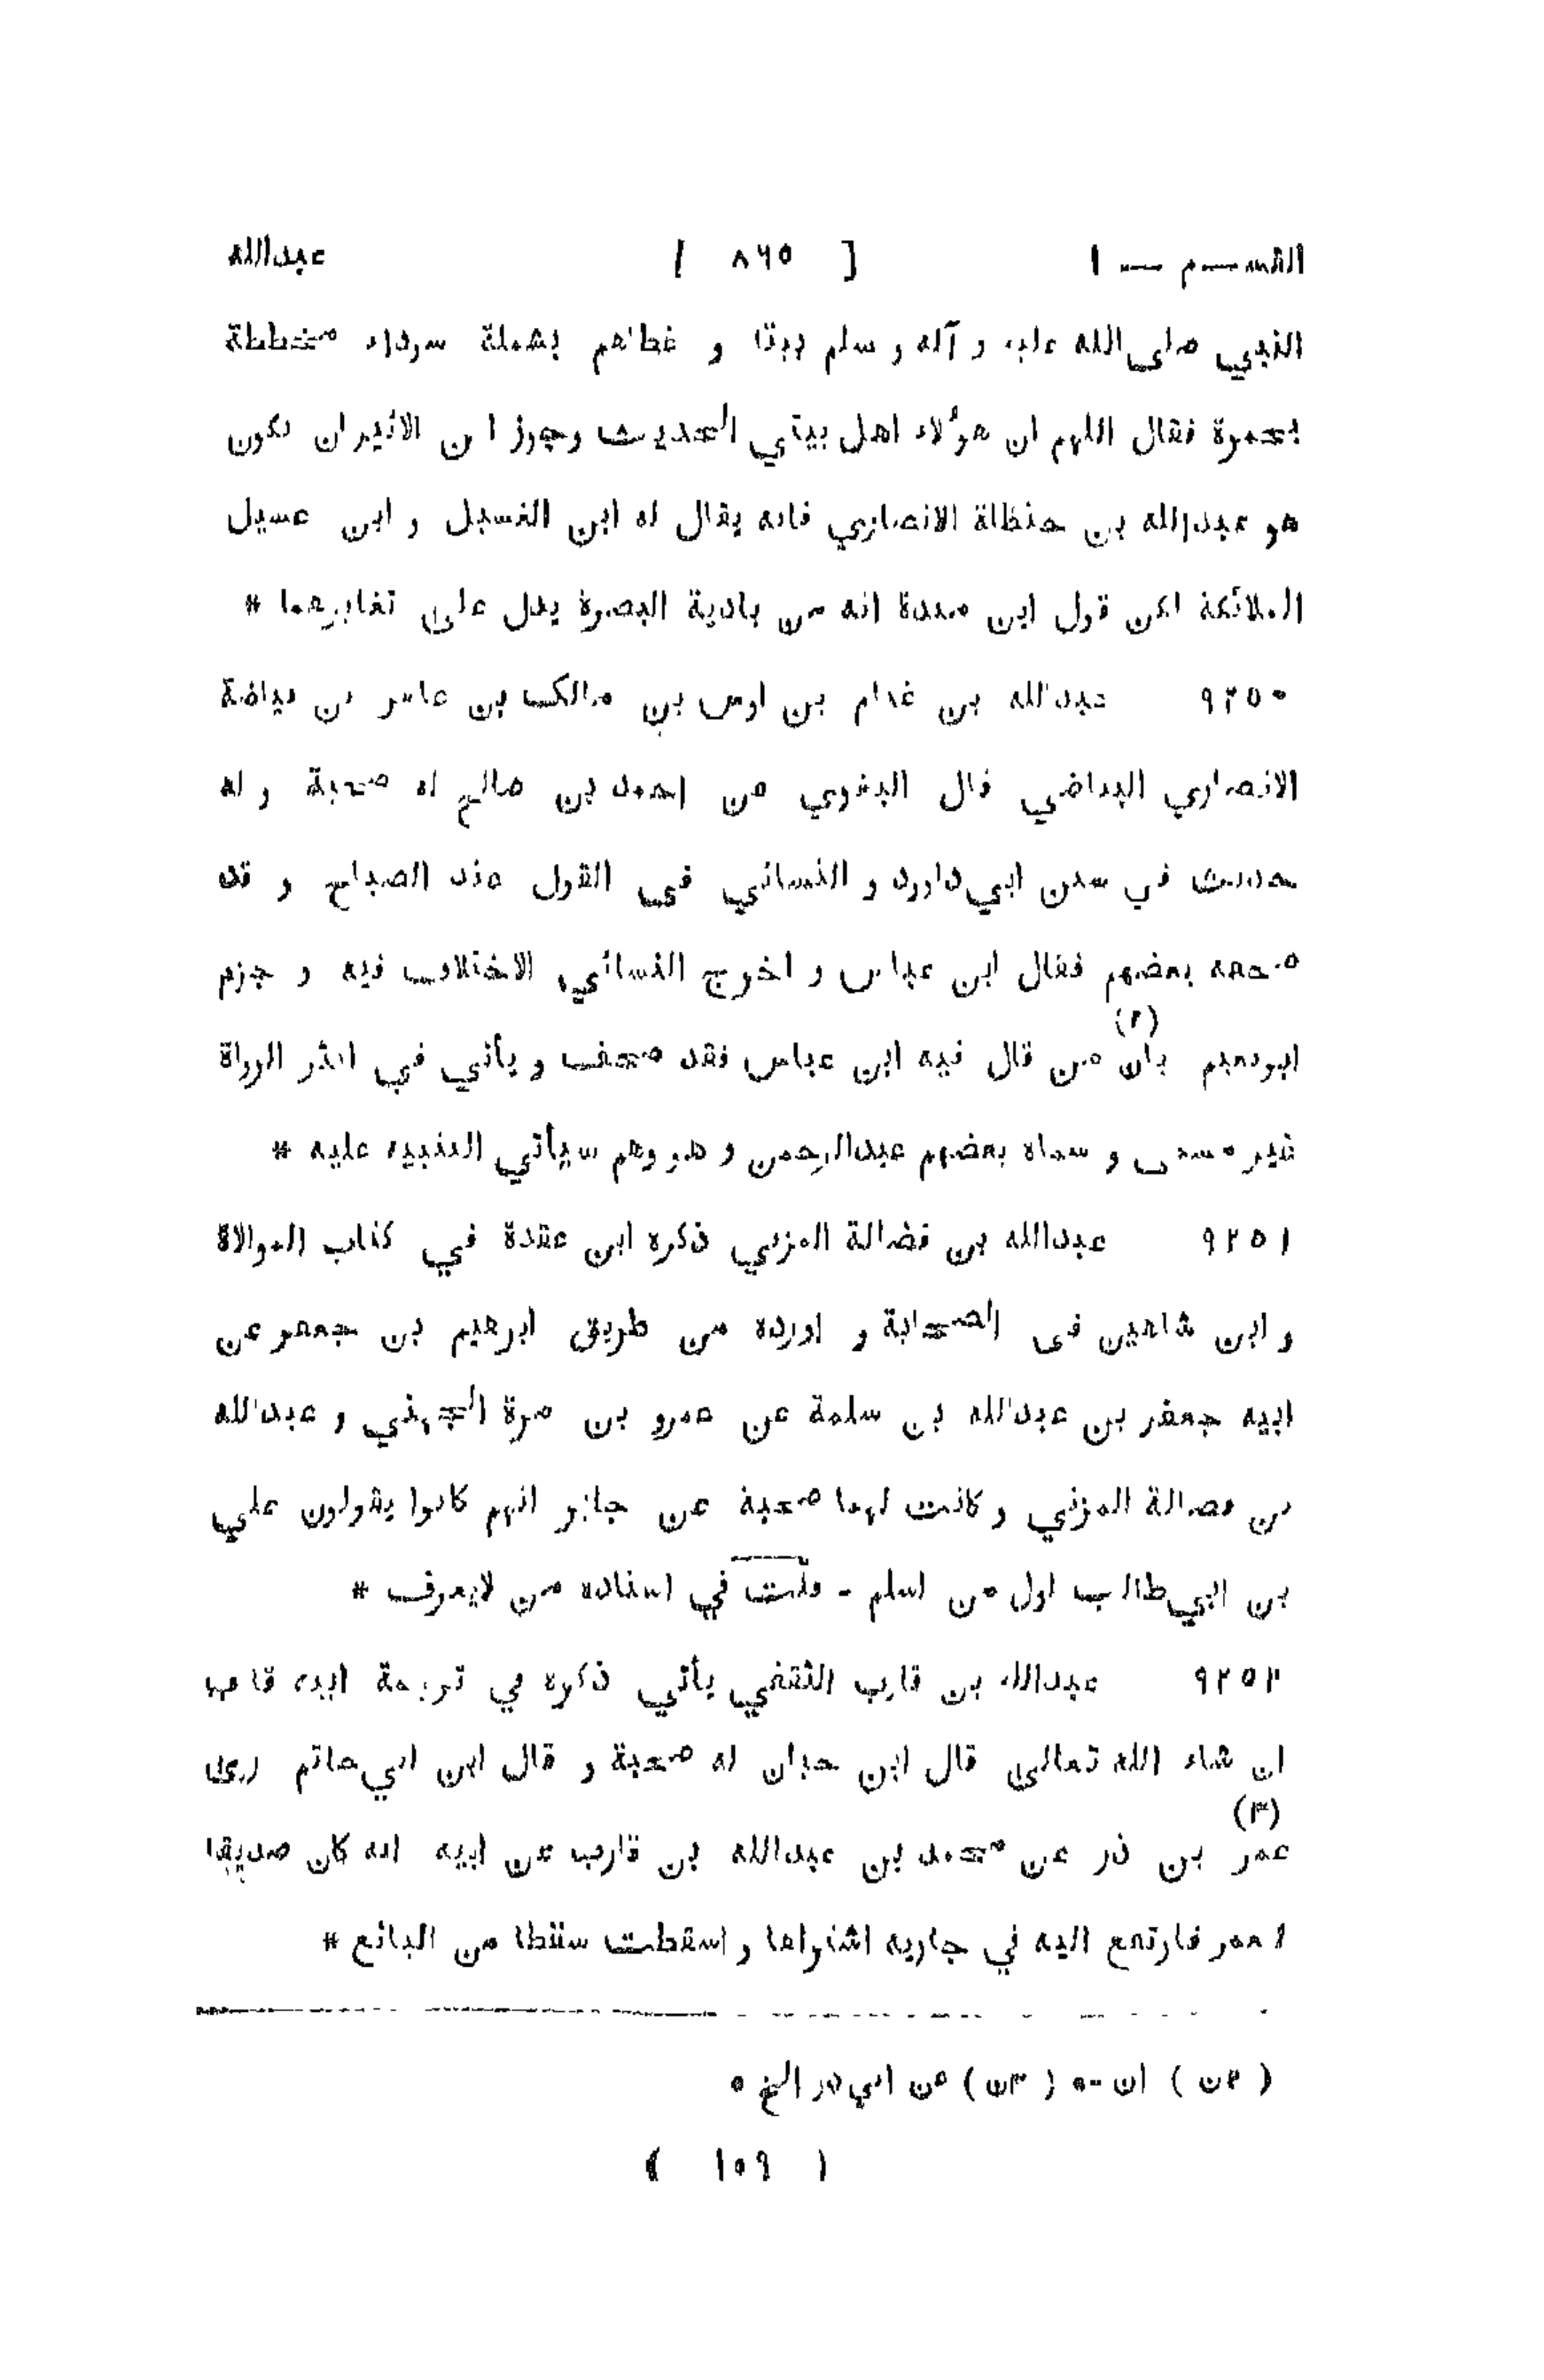 القســـم — ١ [ ٨٦٥ ] عبدالله
النبي صلى الله عليه و آله و سلم بيتا و غطاهم بشملة سوداء مخططة
بحمرة فقال اللهم ان هؤلاء اهل بيتي الحديث وجوز ابن الاثير ان يكون
هو عبدالله بن حنظلة الانصاري فانه يقال له ابن الغسيل و ابن غسيل
الملائكة لكن قول ابن مندة انه من بادية البصرة يدل على تغايرهما *
٩٢٥٠ عبدالله بن غنام بن اوس بن مالك بن عامر بن بياضة
الانصاري البياضي قال البغوي عن احمد بن صالح له صحبة و له
حديث في سنن ابي داود و النسائي في القول عند الصباح و قد
صحفه بعضهم فقال ابن عباس و اخرج النسائي الاختلاف فيه و جزم
ابونعيم بان (٢) من قال فيه ابن عباس فقد صحف و يأتي في اكثر الرواة
غير مسمى و سماه بعضهم عبدالرحمن و هو وهم سيأتي التنبيه عليه *
٩٢٥١ عبدالله بن فضالة المزني ذكره ابن عقدة في كتاب الموالاة
و ابن شاهين في الصحابة و اورده من طريق ابرهيم بن جعفر عن
ابيه جعفر بن عبدالله بن سلمة عن عمرو بن مرة الجهني و عبدالله
بن فضالة المزني و كانت لهما صحبة عن جابر انهم كانوا يقولون علي
بن ابي طالب اول من اسلم - قلت في اسناده من لايعرف *
٩٢٥٢ عبدالله بن قارب الثقفي يأتي ذكره في ترجمة ابيه قارب
ان شاء الله تعالى قال ابن حبان له صحبة و قال ابن ابي حاتم روى
عمر (٣) بن ذر عن محمد بن عبدالله بن قارب عن ابيه انه كان صديقا
لعمر فارتفع اليه في جارية اشتراها و اسقطت سقطا من البائع *
( ٢ن ) ان -ه ( ٣ن ) عن ابي ذر الخ ٥
( ١٠٩ )